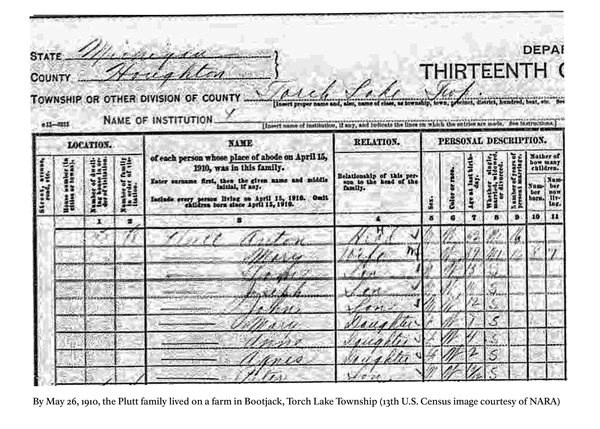 STATE Michigan
DEPA
COUNTY Houghton
THIRTEENTH C
TOWNSHIP OR OTHER DIVISION OF COUNTY Torch Lake Twp.
[Insert proper name and, also, name of class, as township, town, precinct, district, hundred, beat, etc. See
NAME OF INSTITUTION
[Insert name of institution, if any, and indicate the lines on which the entries are made. See instructions.]
LOCATION.
NAME
RELATION.
PERSONAL DESCRIPTION.
Street, avenue, road, etc.
House number (in cities or towns).
Number of dwelling house in order of visitation.
Number of family in order of visitation.
of each person whose place of abode on April 15, 1910, was in this family.
Enter surname first, then the given name and middle initial, if any.
Include every person living on April 15, 1910. Omit children born since April 15, 1910.
Relationship of this person to the head of the family.
Sex.
Color or race.
Age at last birthday.
Whether single, married, widowed, or divorced.
Number of years of present marriage.
Mother of how many children.
Number born.
Number now living.
1 2 3 4 5 6 7 8 9 10 11
Anton Head
Mary Wife
Son
Joseph Son
John Son 12 S
Mary Daughter 7 S
Anna Daughter 4 S
Agnes Daughter 2 S
Peter Son
By May 26, 1910, the Plutt family lived on a farm in Bootjack, Torch Lake Township (13th U.S. Census image courtesy of NARA)